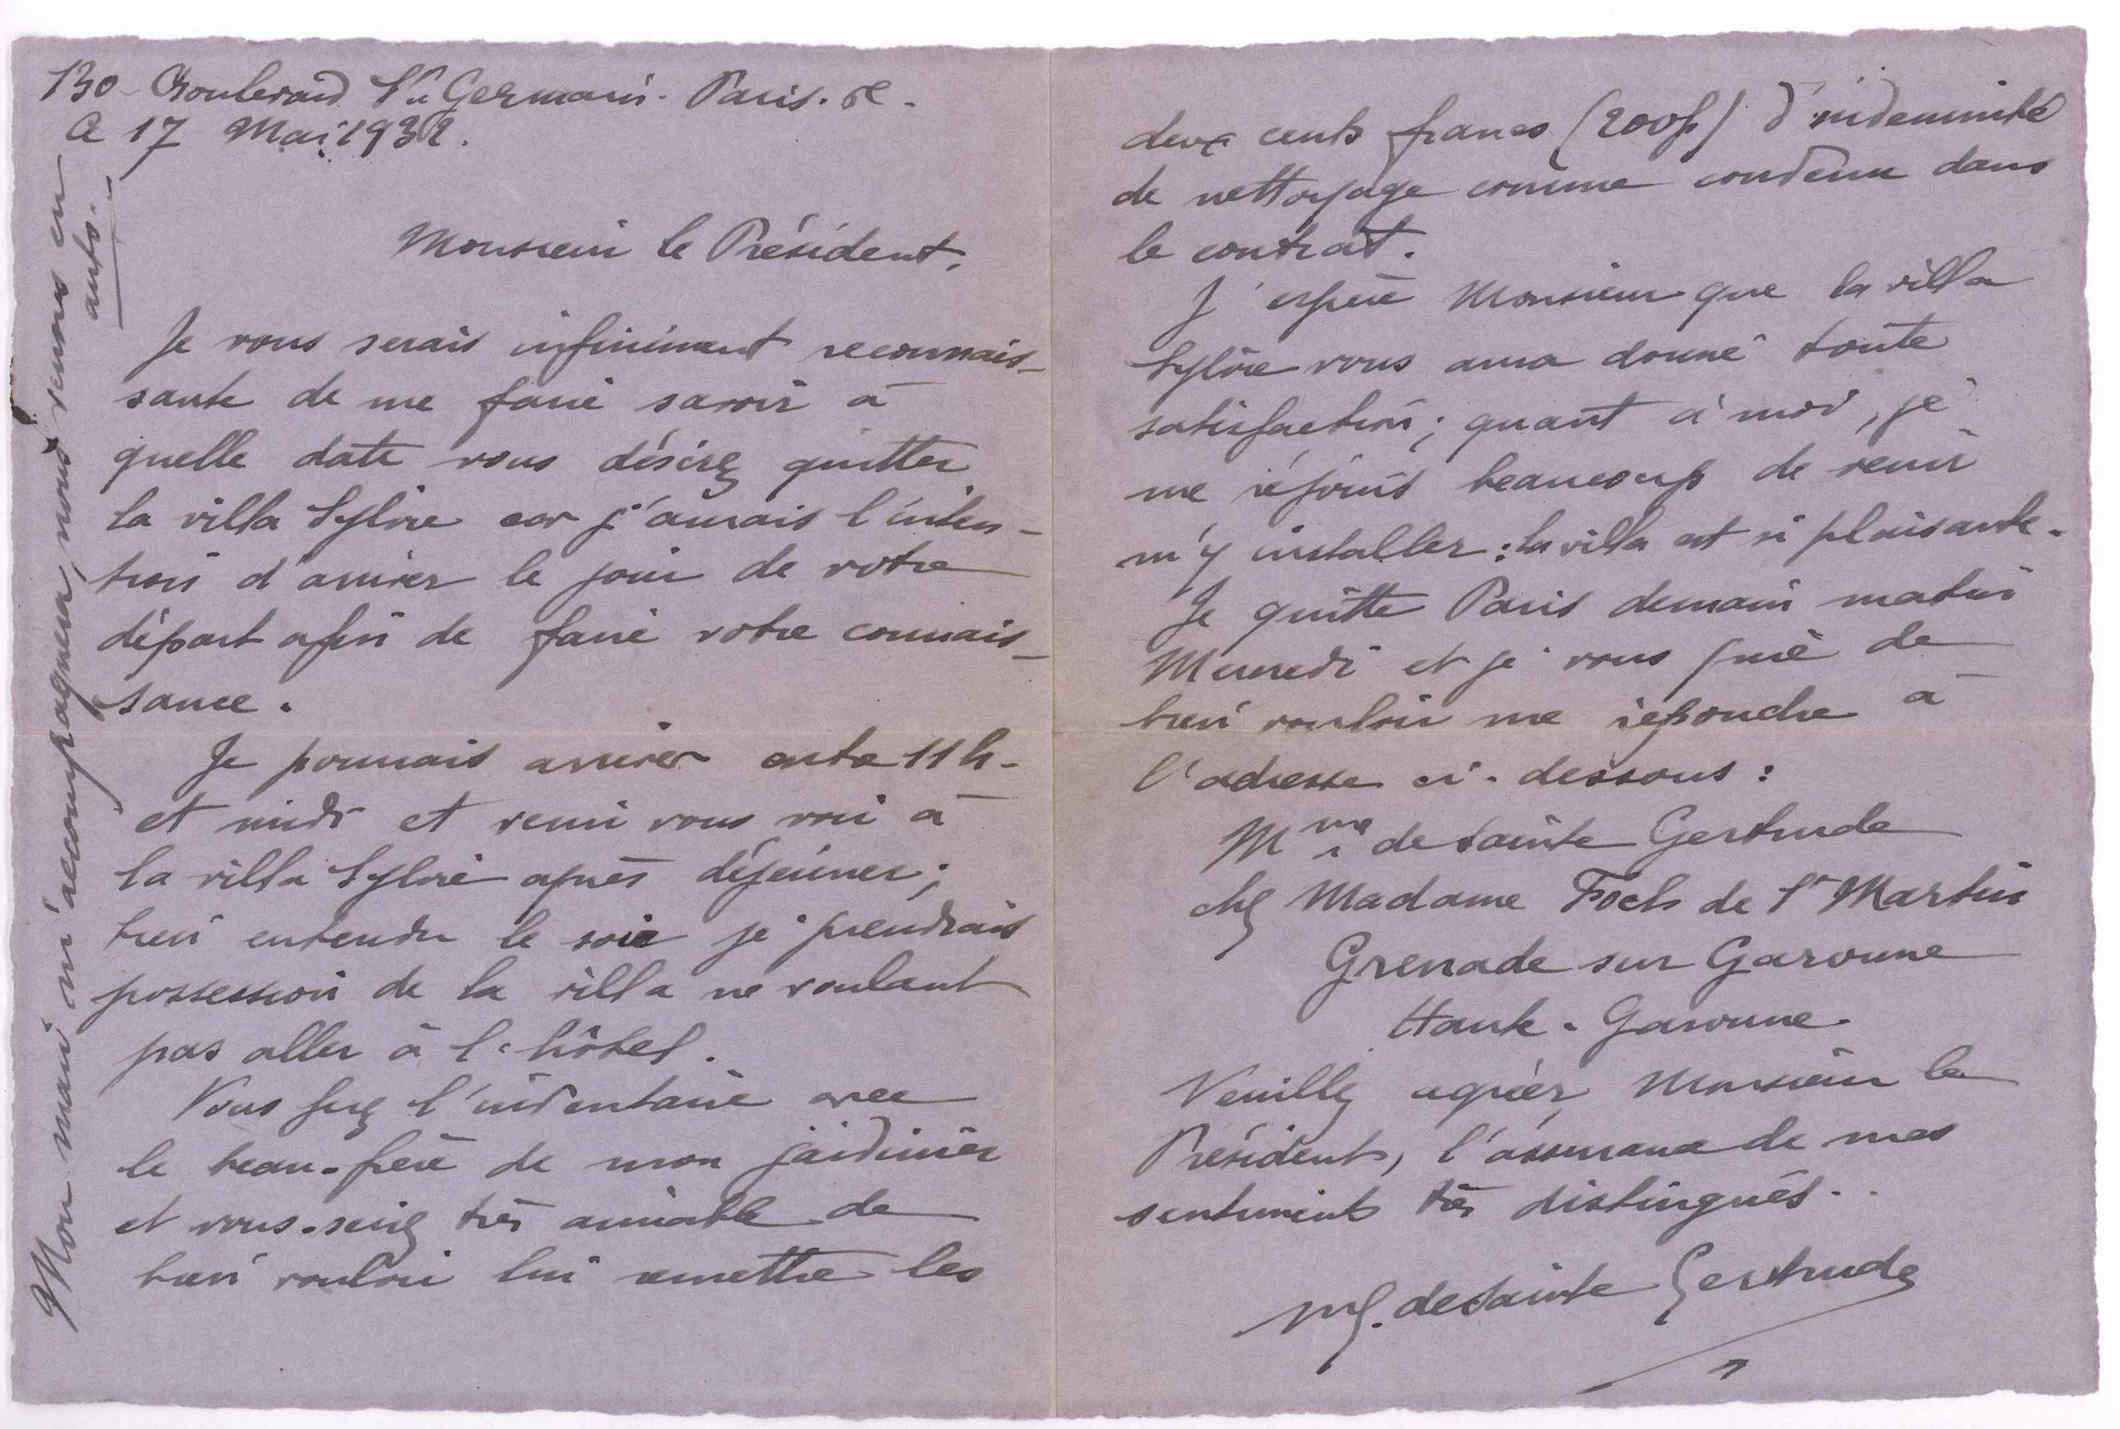 130 - Boulevard St Germain - Paris. 6e.
Ce 17 Mai 1932.
Monsieur le Président,
Je vous serais infiniment reconnais-
sante de me faire savoir à
quelle date vous désirez quitter
la villa Sylvie car j'aurais l'inten-
tion d'arriver le jour de votre
départ afin de faire votre connais-
sance.
Je pourrais arriver entre 11h-
et midi et venir vous voir à
la villa Sylvie après déjeuner;
bien entendu le soir je prendrais
possession de la villa ne voulant
pas aller à l'hôtel.
Vous ferez l'inventaire avec
le beau-frère de mon jardinier
et vous seriez très aimable de
bien vouloir lui remettre les
Mon mari m'accompagnera, nous venons en
auto.
deux cents francs (200f) d'indemnité
de nettoyage comme convenu dans
le contrat.
J'espère Monsieur que la villa
Sylvie vous aura donné toute
satisfaction; quant à moi, je
me réjouis beaucoup de venir
m'y installer: la villa est si plaisante.
Je quitte Paris demain matin
Mercredi et je vous prie de
bien vouloir me répondre à
l'adresse ci-dessous:
Mme de Sainte Gertrude
chez Madame Foch de St Martin
Grenade sur Garonne
Haute-Garonne.
Veuillez agréer, Monsieur le
Président, l'assurance de mes
sentiments très distingués.
de Sainte Gertrude